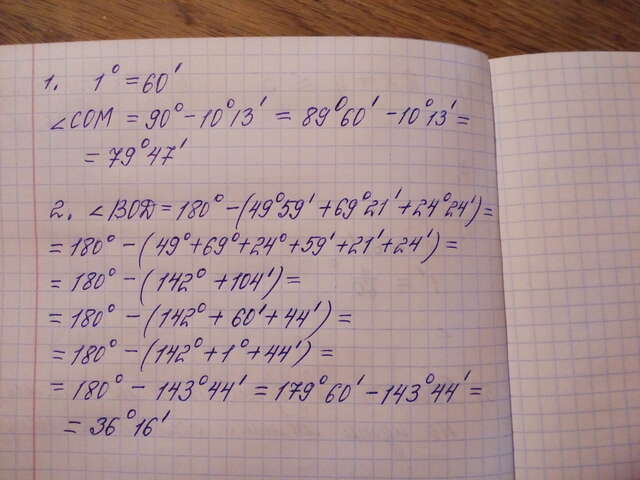 1. 1° = 60′
∠COM = 90° - 10°13′ = 89°60′ - 10°13′ =
= 79°47′
2. ∠BOD = 180° - (49°59′ + 69°21′ + 24°24′) =
= 180° - (49° + 69° + 24° + 59′ + 21′ + 24′) =
= 180° - (142° + 104′) =
= 180° - (142° + 60′ + 44′) =
= 180° - (142° + 1° + 44′) =
= 180° - 143°44′ = 179°60′ - 143°44′ =
= 36°16′